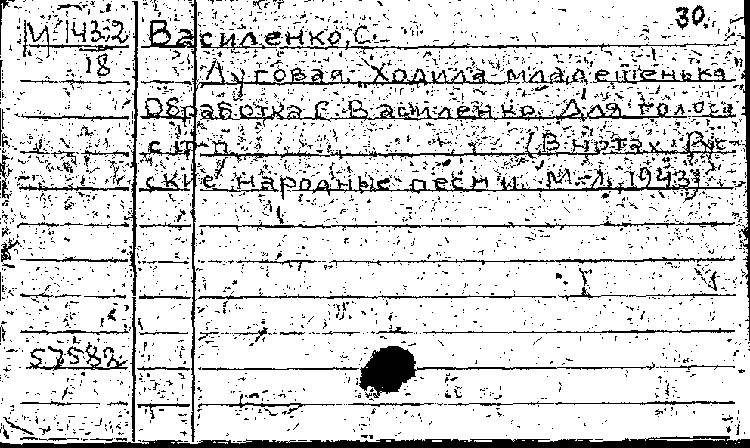 30.
М 143-2 Василенко, С.
18 Луговая. Ходила младешенька
Обработка С. Василенко. Для голоса
с ф-п. (В нотах: Рус-
ские народные песни. М.-Л., 1943)
57582